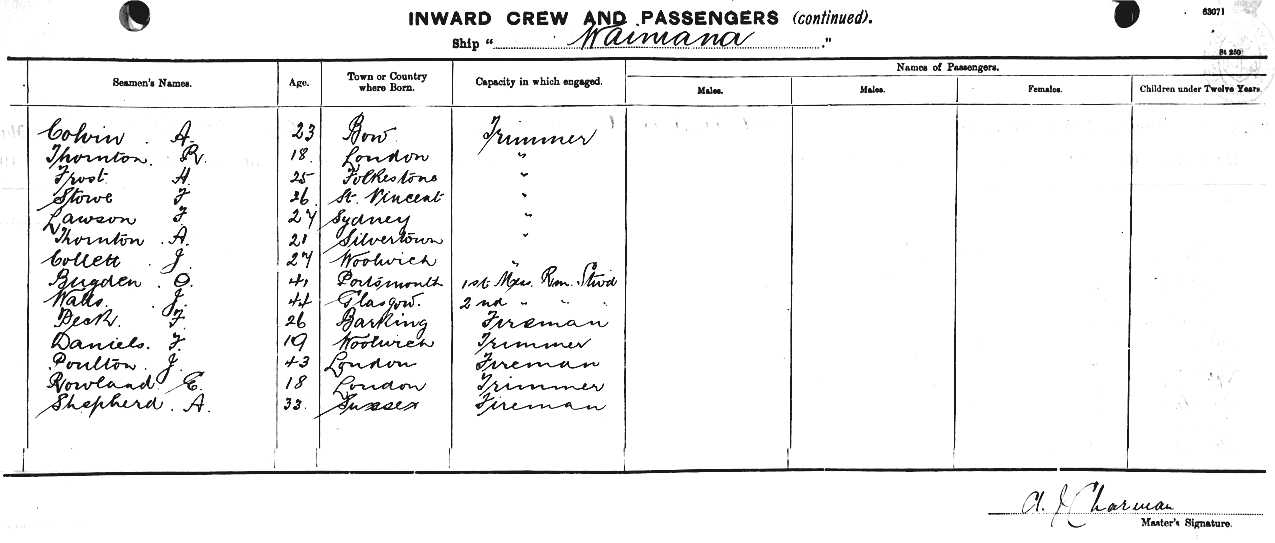 63071
INWARD CREW AND PASSENGERS (continued).
Ship "Waimana."
St 250
Seamen's Names. Age. Town or Country where Born. Capacity in which engaged. Names of Passengers.
Males. Males. Females. Children under Twelve Years.
Colvin . A. 23 Bow Trimmer
Thornton. R. 18. London "
Frost. H. 25 Folkestone "
Stowe F 26. St. Vincent "
Lawson F 27 Sydney "
Thornton . A. 21 Silvertown "
Collett . J. 27 Woolwich "
Bugden . O. 41 Portsmouth 1st Mess. Rm. Stwd
Watts. J. 44 Glasgow. 2nd " " "
Peck. F. 26 Barking Fireman
Daniels. F. 19 Woolwich Trimmer
Poulton. J. 43 London Fireman
Rowland E. 18 London Trimmer
Shepherd . A. 33. Sussex Fireman
A. J. Charman
Master's Signature.